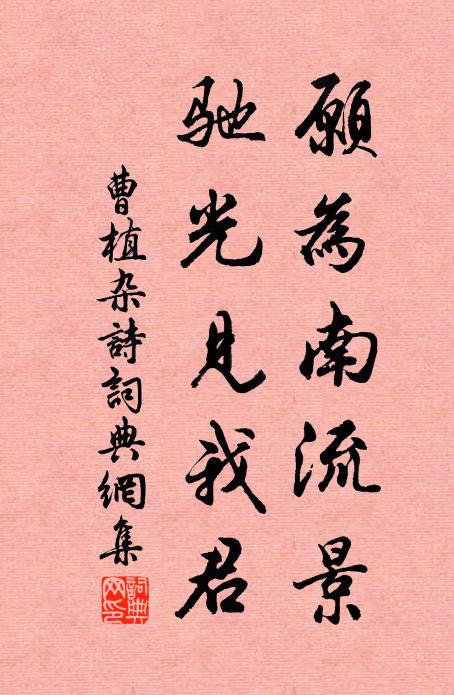 願為南流景
馳光見我君
曹植杂詩詞典網集
詞典網印